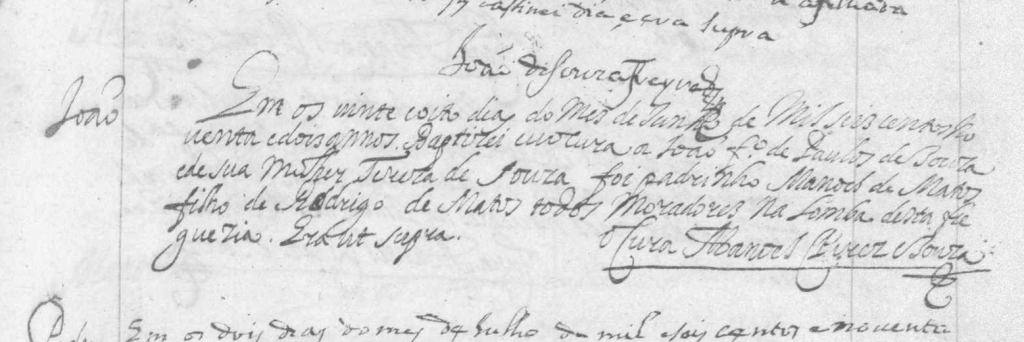 afilhada
dia e era supra
João de Souza
João
Em os vinte e oito dias do Mes de Junho de Mil seis centos no
venta e dois annos. Baptizei eu o Cura a João fo. de Paulos de Souza
e de sua Molher Tereza de Souza foi padrinho Manoel de Matos
filho de Rodrigo de Matos todos Moradores na Lomba desta fre
guezia. Era ut supra.
O Cura Manoel Souza
Em os dois dias do mes de Julho de mil e seis centos e noventa